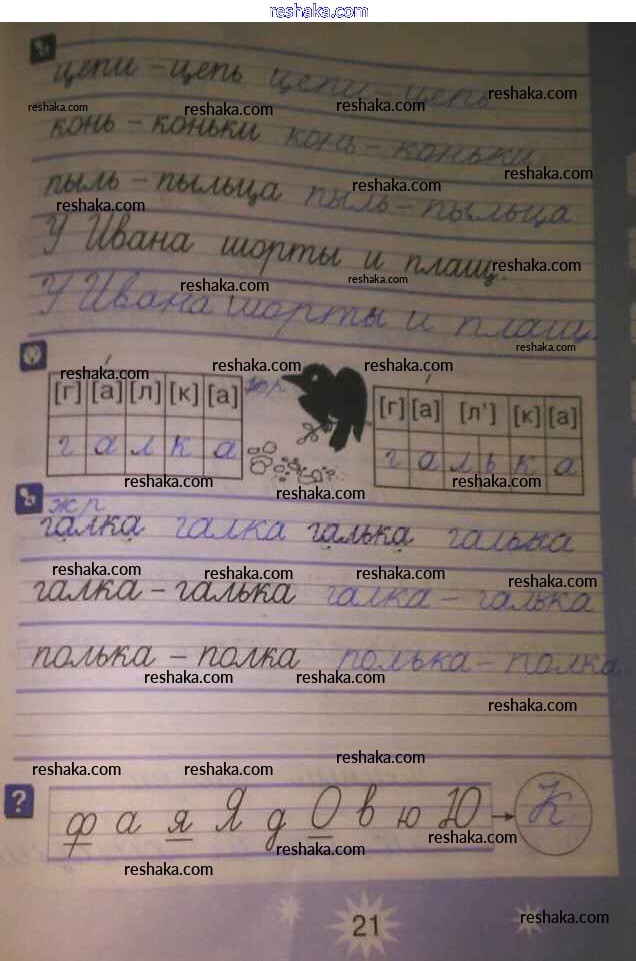 reshaka.com
цепи – цепь цепи – цепь
reshaka.com reshaka.com reshaka.com reshaka.com
конь – коньки конь – коньки
reshaka.com
пыль – пыльца пыль – пыльца
reshaka.com reshaka.com
У Ивана шорты и плащ.
reshaka.com reshaka.com reshaka.com
У Ивана шорты и плащ.
reshaka.com
reshaka.com reshaka.com reshaka.com
[г] [а] [л] [к] [а] жр [г] [а] [л'] [к] [а]
г а л к а г а л ь к а
reshaka.com reshaka.com reshaka.com
жр
галка галка галька галька
reshaka.com reshaka.com reshaka.com reshaka.com
галка – галька галка – галька
полька – полка полька – полка
reshaka.com reshaka.com
reshaka.com
reshaka.com
reshaka.com reshaka.com
? ф а я Я д О в ю Ю К
reshaka.com
reshaka.com
reshaka.com
21
reshaka.com